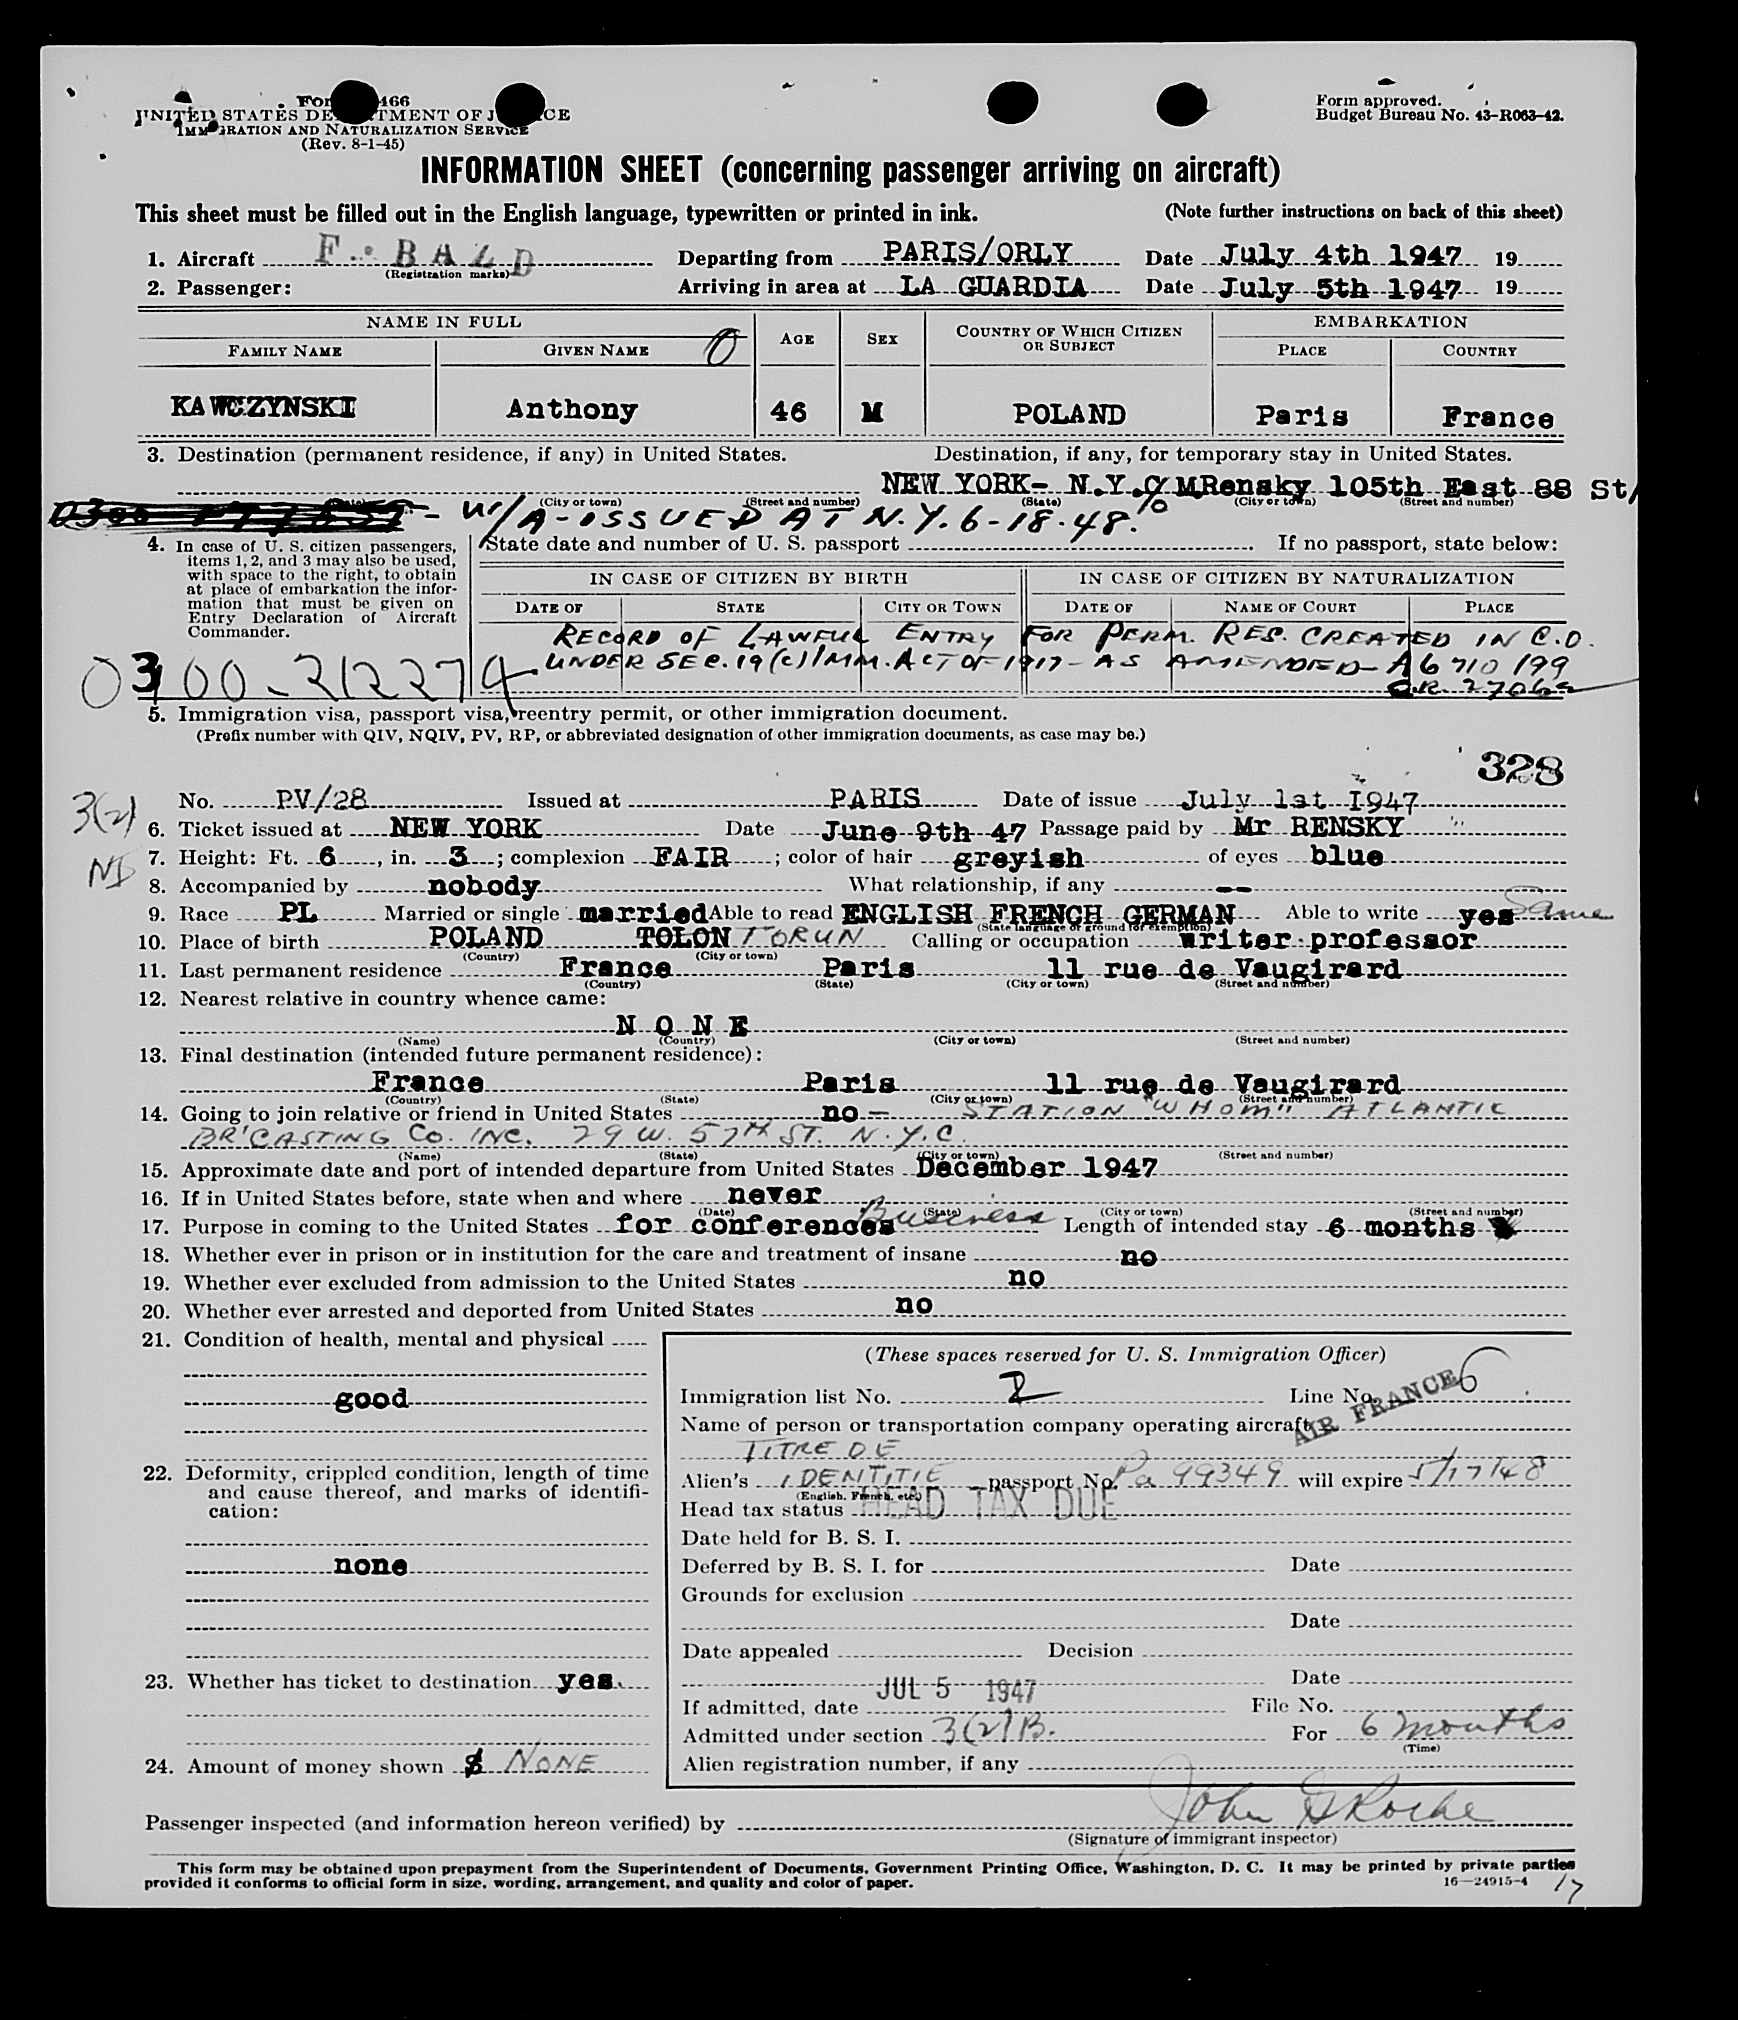 Form 466
UNITED STATES DEPARTMENT OF JUSTICE
IMMIGRATION AND NATURALIZATION SERVICE
(Rev. 8-1-45)
Form approved.
Budget Bureau No. 43-R063-42.
INFORMATION SHEET (concerning passenger arriving on aircraft)
This sheet must be filled out in the English language, typewritten or printed in ink. (Note further instructions on back of this sheet)
1. Aircraft F. BAZD Departing from PARIS/ORLY Date July 4th 1947 19
(Registration marks)
2. Passenger: Arriving in area at LA GUARDIA Date July 5th 1947 19
NAME IN FULL AGE SEX COUNTRY OF WHICH CITIZEN OR SUBJECT EMBARKATION
FAMILY NAME GIVEN NAME O PLACE COUNTRY
KAWCZYNSKI Anthony 46 M POLAND Paris France
3. Destination (permanent residence, if any) in United States. Destination, if any, for temporary stay in United States.
NEW YORK- N.Y.C/ MRensky 105th East 88 St/
(City or town) (Street and number) (State) (City or town) (Street and number)
- W/A - ISSUED AT N.Y. 6-18-48. %
4. In case of U. S. citizen passengers, items 1, 2, and 3 may also be used, with space to the right, to obtain at place of embarkation the information that must be given on Entry Declaration of Aircraft Commander.
State date and number of U. S. passport If no passport, state below:
IN CASE OF CITIZEN BY BIRTH IN CASE OF CITIZEN BY NATURALIZATION
DATE OF STATE CITY OR TOWN DATE OF NAME OF COURT PLACE
RECORD OF LAWFUL ENTRY FOR PERM. RES. CREATED IN C.O.
UNDER SEC. 19(c) IMM. ACT OF 1917 - AS AMENDED - A6 710 199
0300-212274
5. Immigration visa, passport visa, reentry permit, or other immigration document.
(Prefix number with QIV, NQIV, PV, RP, or abbreviated designation of other immigration documents, as case may be.)
328
3(2)
No. PV/28 Issued at PARIS Date of issue July 1st I947
6. Ticket issued at NEW YORK Date June 9th 47 Passage paid by Mr RENSKY
7. Height: Ft. 6, in. 3; complexion FAIR; color of hair greyish of eyes blue
8. Accompanied by nobody What relationship, if any --
9. Race PL Married or single married Able to read ENGLISH FRENCH GERMAN Able to write yes Same
(State language or ground for exemption)
10. Place of birth POLAND TOLON TORUN Calling or occupation writer professor
(Country) (City or town)
11. Last permanent residence France Paris 11 rue de Vaugirard
(Country) (State) (City or town) (Street and number)
12. Nearest relative in country whence came:
N O N E
(Name) (Country) (City or town) (Street and number)
13. Final destination (intended future permanent residence):
France Paris 11 rue de Vaugirard
(Country) (State) (City or town) (Street and number)
14. Going to join relative or friend in United States no - STATION "WHOM" ATLANTIC
BR'CASTING CO. INC. 29 W. 57TH ST. N.Y.C.
(Name) (State) (City or town) (Street and number)
15. Approximate date and port of intended departure from United States December 1947
16. If in United States before, state when and where never
(Date) (State) (City or town) (Street and number)
17. Purpose in coming to the United States for conferences Business Length of intended stay 6 months
18. Whether ever in prison or in institution for the care and treatment of insane no
19. Whether ever excluded from admission to the United States no
20. Whether ever arrested and deported from United States no
21. Condition of health, mental and physical
good
22. Deformity, crippled condition, length of time and cause thereof, and marks of identification:
none
23. Whether has ticket to destination yes.
24. Amount of money shown $ NONE
(These spaces reserved for U. S. Immigration Officer)
Immigration list No. 2 Line No. 6
Name of person or transportation company operating aircraft AIR FRANCE
TITRE DE
Alien's IDENTITIE passport No. Pa 99349 will expire 5/17/48
(English, French, etc.)
Head tax status HEAD TAX DUE
Date held for B. S. I.
Deferred by B. S. I. for Date
Grounds for exclusion
Date
Date appealed Decision
Date
If admitted, date JUL 5 1947 File No.
Admitted under section 3(2)B. For 6 months
(Time)
Alien registration number, if any
Passenger inspected (and information hereon verified) by John G Roche
(Signature of immigrant inspector)
This form may be obtained upon prepayment from the Superintendent of Documents, Government Printing Office, Washington, D. C. It may be printed by private parties
provided it conforms to official form in size, wording, arrangement, and quality and color of paper.
16—24915-4
17